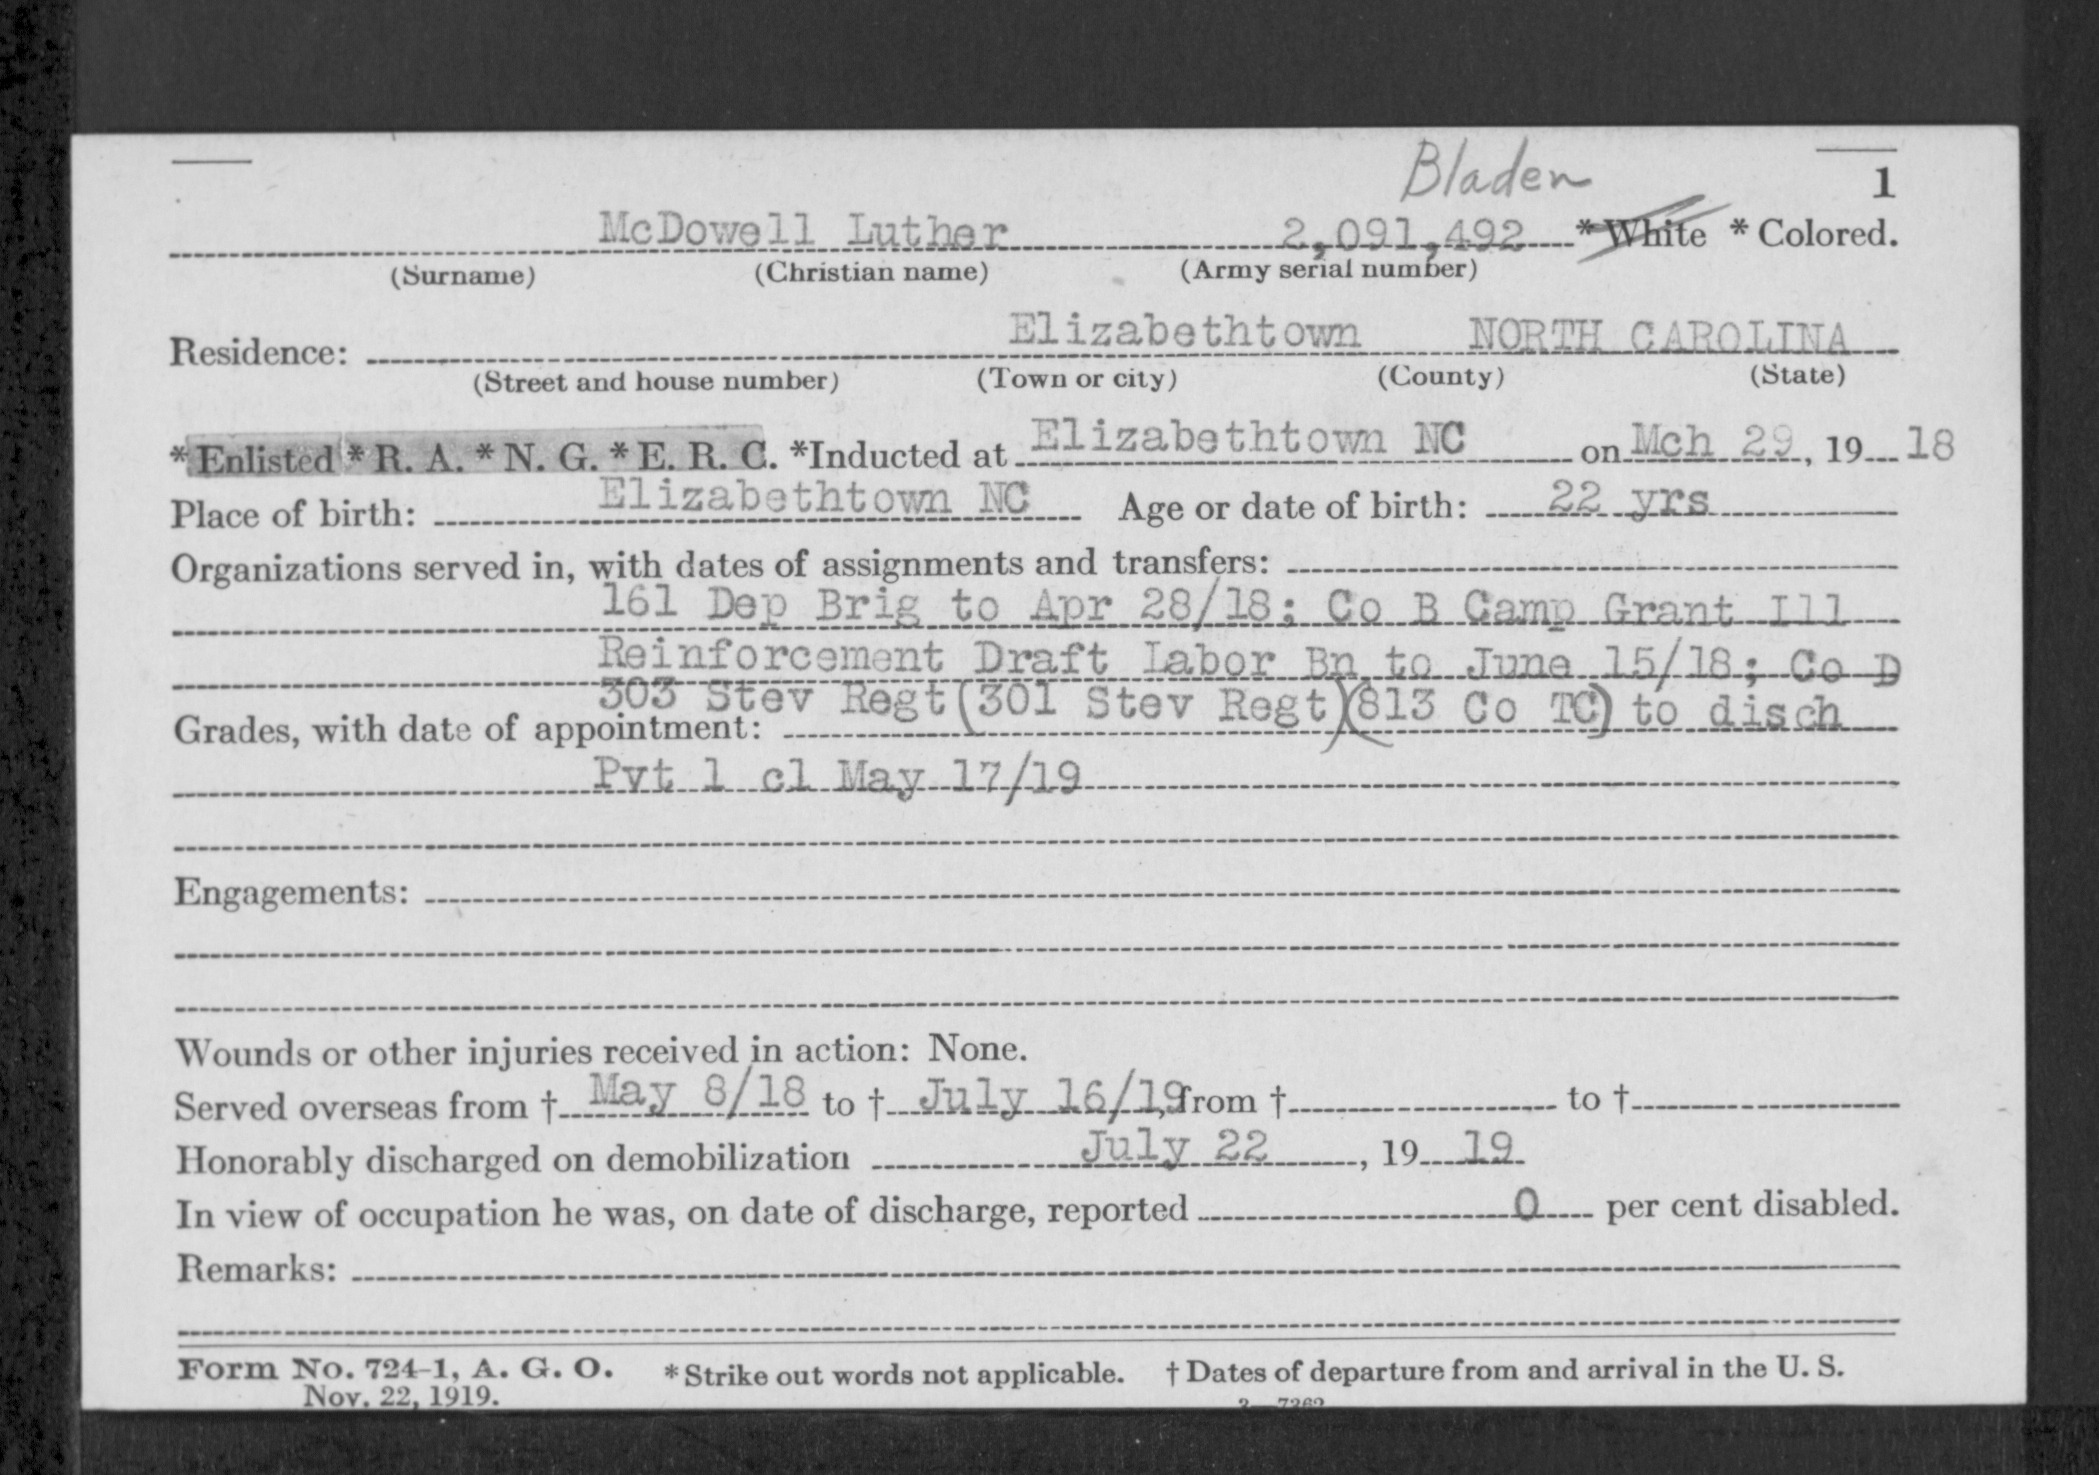 Bladen
1
McDowell Luther 2,091,492 *White *Colored.
(Surname) (Christian name) (Army serial number)
Elizabethtown NORTH CAROLINA
Residence:
(Street and house number) (Town or city) (County) (State)
*Enlisted *R. A. *N. G. *E. R. C. *Inducted at Elizabethtown NC on Mch 29, 19 18
Place of birth: Elizabethtown NC Age or date of birth: 22 yrs
Organizations served in, with dates of assignments and transfers:
161 Dep Brig to Apr 28/18; Co B Camp Grant Ill
Reinforcement Draft Labor Bn to June 15/18; Co D
303 Stev Regt (301 Stev Regt)(813 Co TC) to disch
Grades, with date of appointment:
Pvt 1 cl May 17/19
Engagements:
Wounds or other injuries received in action: None.
Served overseas from † May 8/18 to † July 16/19, from † to †
Honorably discharged on demobilization July 22, 19 19
In view of occupation he was, on date of discharge, reported 0 per cent disabled.
Remarks:
Form No. 724-1, A. G. O. *Strike out words not applicable. † Dates of departure from and arrival in the U. S.
Nov. 22, 1919.